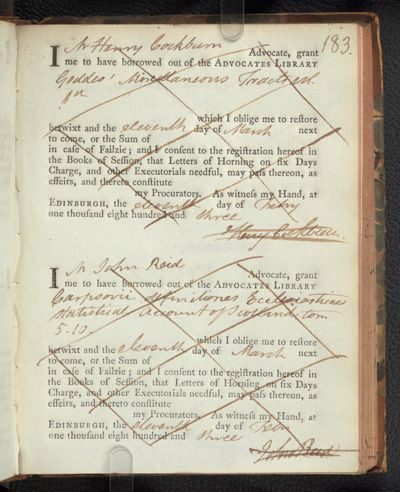 183.
I Mr Henry Cockburn Advocate, grant
me to have borrowed out of the ADVOCATES LIBRARY
Geddes' Miscellaneous Tracts vol.
which I oblige me to reſtore
betwixt and the eleventh day of March next
to come, or the Sum of
in caſe of Failzie; and I conſent to the regiſtration hereof in
the Books of Seſſion, that Letters of Horning on ſix Days
Charge, and other Executorials needful, may paſs thereon, as
effeirs, and thereto conſtitute
my Procurators. As witneſs my Hand, at
EDINBURGH, the eleventh day of Febry
one thouſand eight hundred and three
Henry Cockburn.
I Mr John Reid Advocate, grant
me to have borrowed out of the ADVOCATES LIBRARY
Carpsovii definitiones Ecclesiasticae
Statistical Account of Scotland tom
5.10.
which I oblige me to reſtore
betwixt and the eleventh day of March next
to come, or the Sum of
in caſe of Failzie; and I conſent to the regiſtration hereof in
the Books of Seſſion, that Letters of Horning on ſix Days
Charge, and other Executorials needful, may paſs thereon, as
effeirs, and thereto conſtitute
my Procurators. As witneſs my Hand, at
EDINBURGH, the eleventh day of Febry
one thouſand eight hundred and three
John Reid